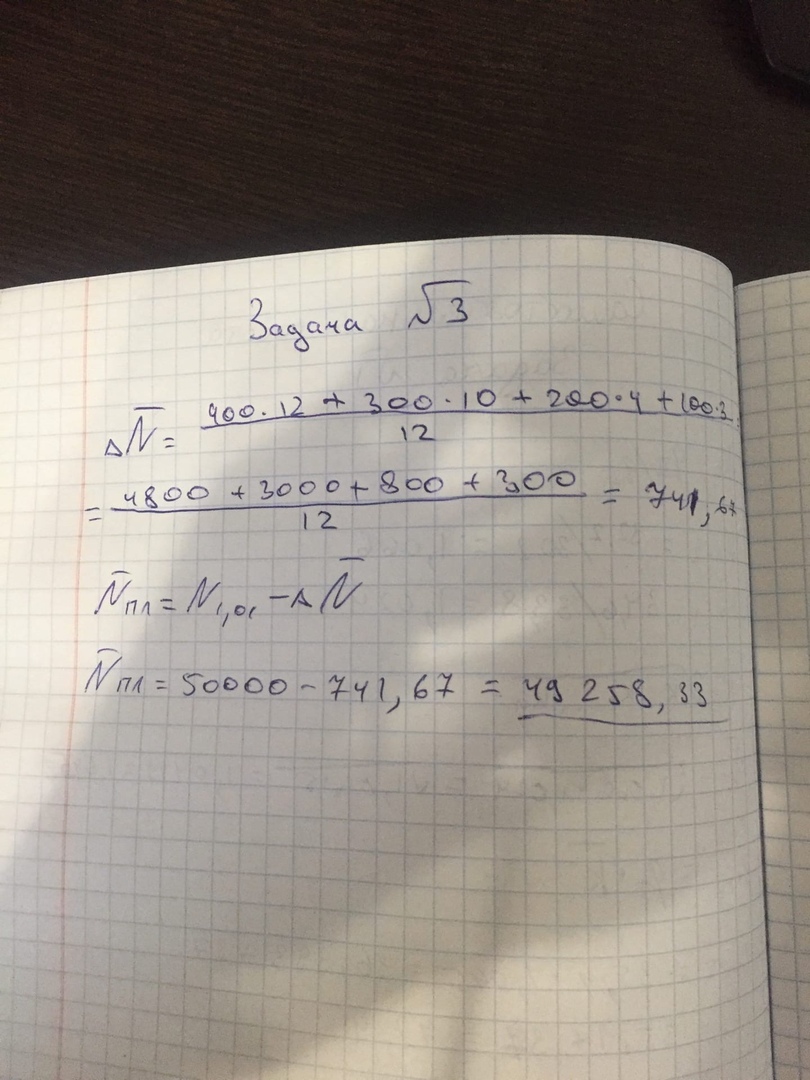 Задача √3
ΔN̄ = (400·12 + 300·10 + 200·4 + 100·3)/12 =
= (4800 + 3000 + 800 + 300)/12 = 741,67
N̄пл = N1,01 - ΔN̄
N̄пл = 50000 - 741,67 = 49 258,33